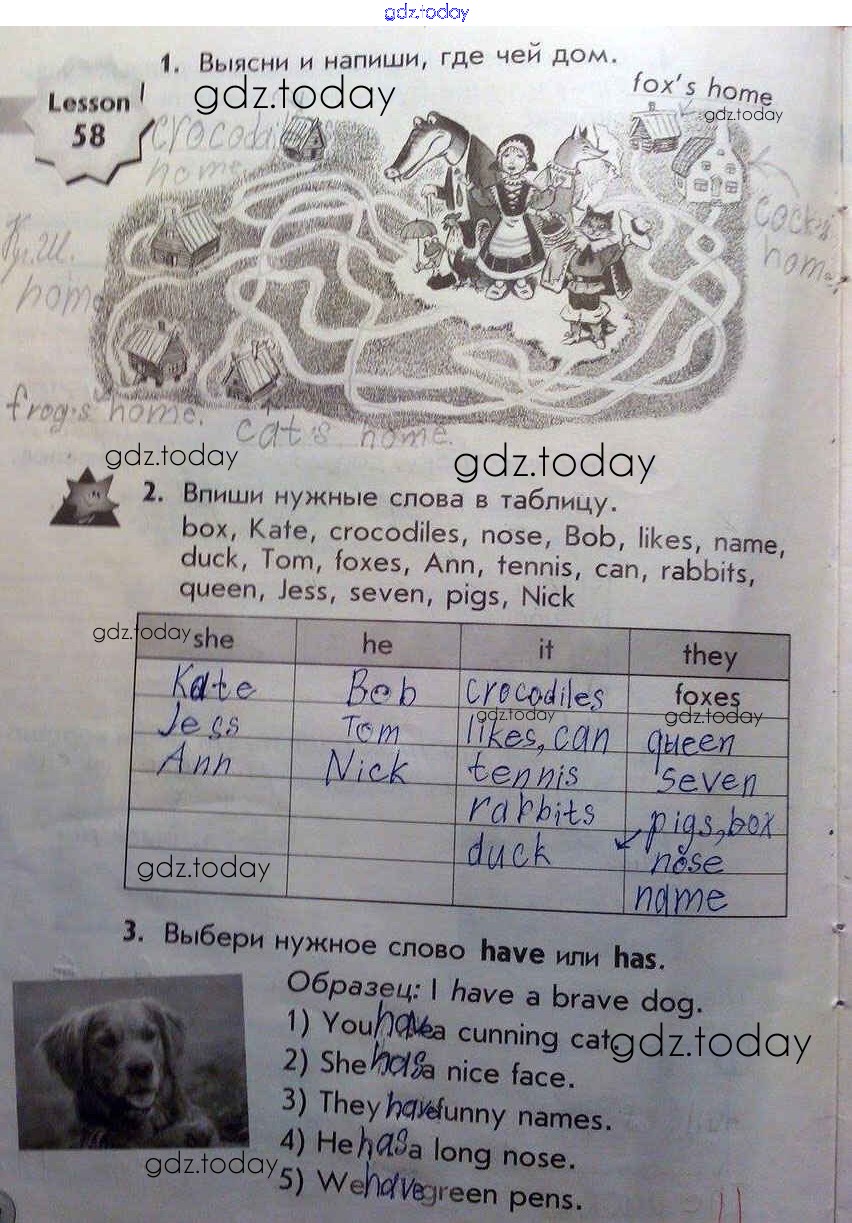 gdz.today
1. Выясни и напиши, где чей дом.
Lesson
58
gdz.today
fox's home
gdz.today
crocodile
home
cock's
home
Кр.Ш.
home
frog's home.
cat's home.
gdz.today
gdz.today
2. Впиши нужные слова в таблицу.
box, Kate, crocodiles, nose, Bob, likes, name,
duck, Tom, foxes, Ann, tennis, can, rabbits,
queen, Jess, seven, pigs, Nick
gdz.today
she he it they
Kate Bob crocodiles foxes
gdz.today gdz.today
Jess Tom likes, can queen
Ann Nick tennis seven
rabbits pigs, box
duck nose
gdz.today
name
3. Выбери нужное слово have или has.
Образец: I have a brave dog.
1) You have a cunning cat.
gdz.today
2) She has a nice face.
3) They have funny names.
4) He has a long nose.
gdz.today
5) We have green pens.